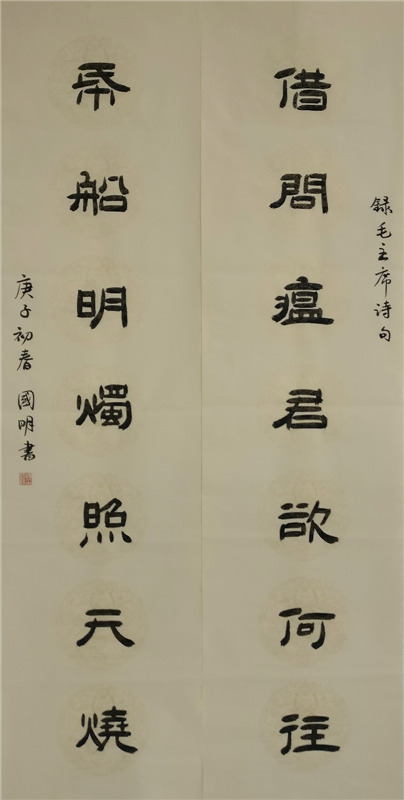 録毛主席诗句
借問瘟君欲何往
帋船明燭照天燒
庚子初春 國明書